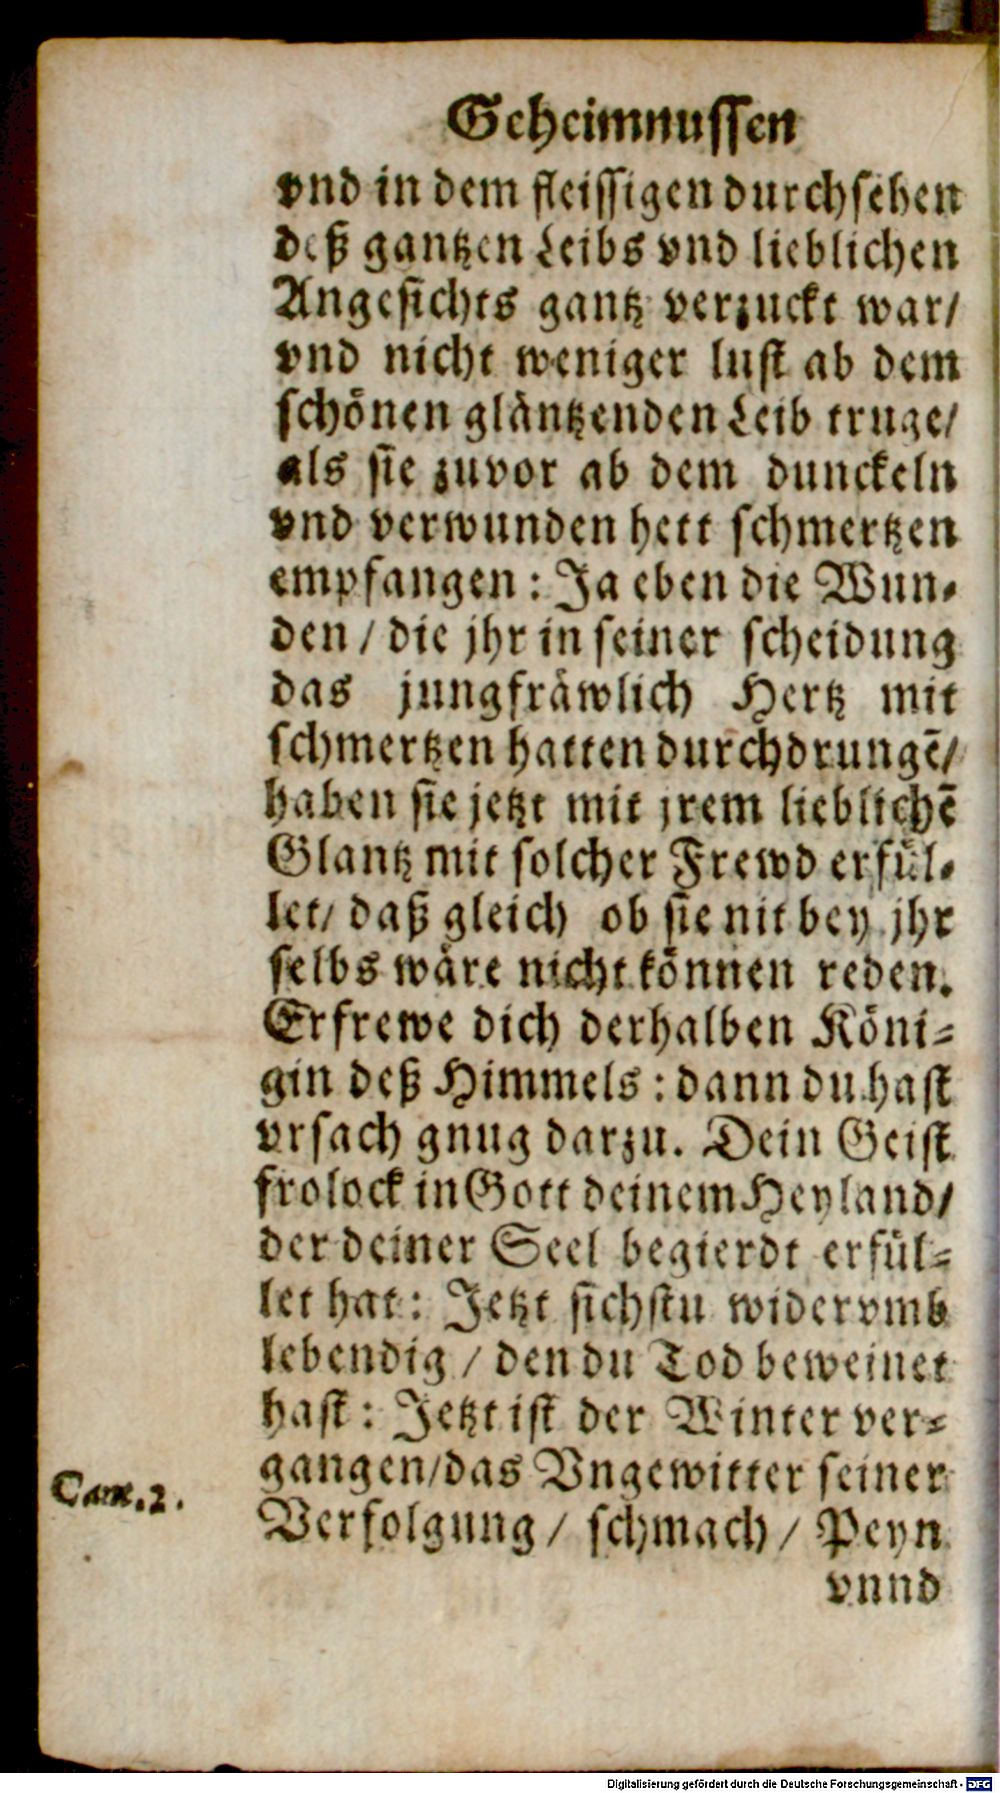 Geheimnussen
vnd in dem fleissigen durchsehen
deß gantzen Leibs vnd lieblichen
Angesichts gantz verzuckt war/
vnd nicht weniger lust ab dem
schönen gläntzenden Leib truge/
als sie zuvor ab dem dunckeln
vnd verwunden hett schmertzen
empfangen: Ja eben die Wun-
den / die jhr in seiner scheidung
das jungfräwlich Hertz mit
schmertzen hatten durchdrungē/
haben sie jetzt mit jrem lieblichē
Glantz mit solcher Frewd erfül-
let/ daß gleich ob sie nit bey jhr
selbs wäre nicht können reden.
Erfrewe dich derhalben Köni-
gin deß Himmels: dann du hast
vrsach gnug darzu. Dein Geist
frolock in Gott deinem Heyland/
der deiner Seel begierdt erfül-
let hat: Jetzt sichstu widerumb
lebendig / den du Tod beweinet
hast: Jetzt ist der Winter ver-
gangen/das Vngewitter seiner
Cant.2.
Verfolgung / schmach / Peyn
vnnd
Digitalisierung gefördert durch die Deutsche Forschungsgemeinschaft - DFG